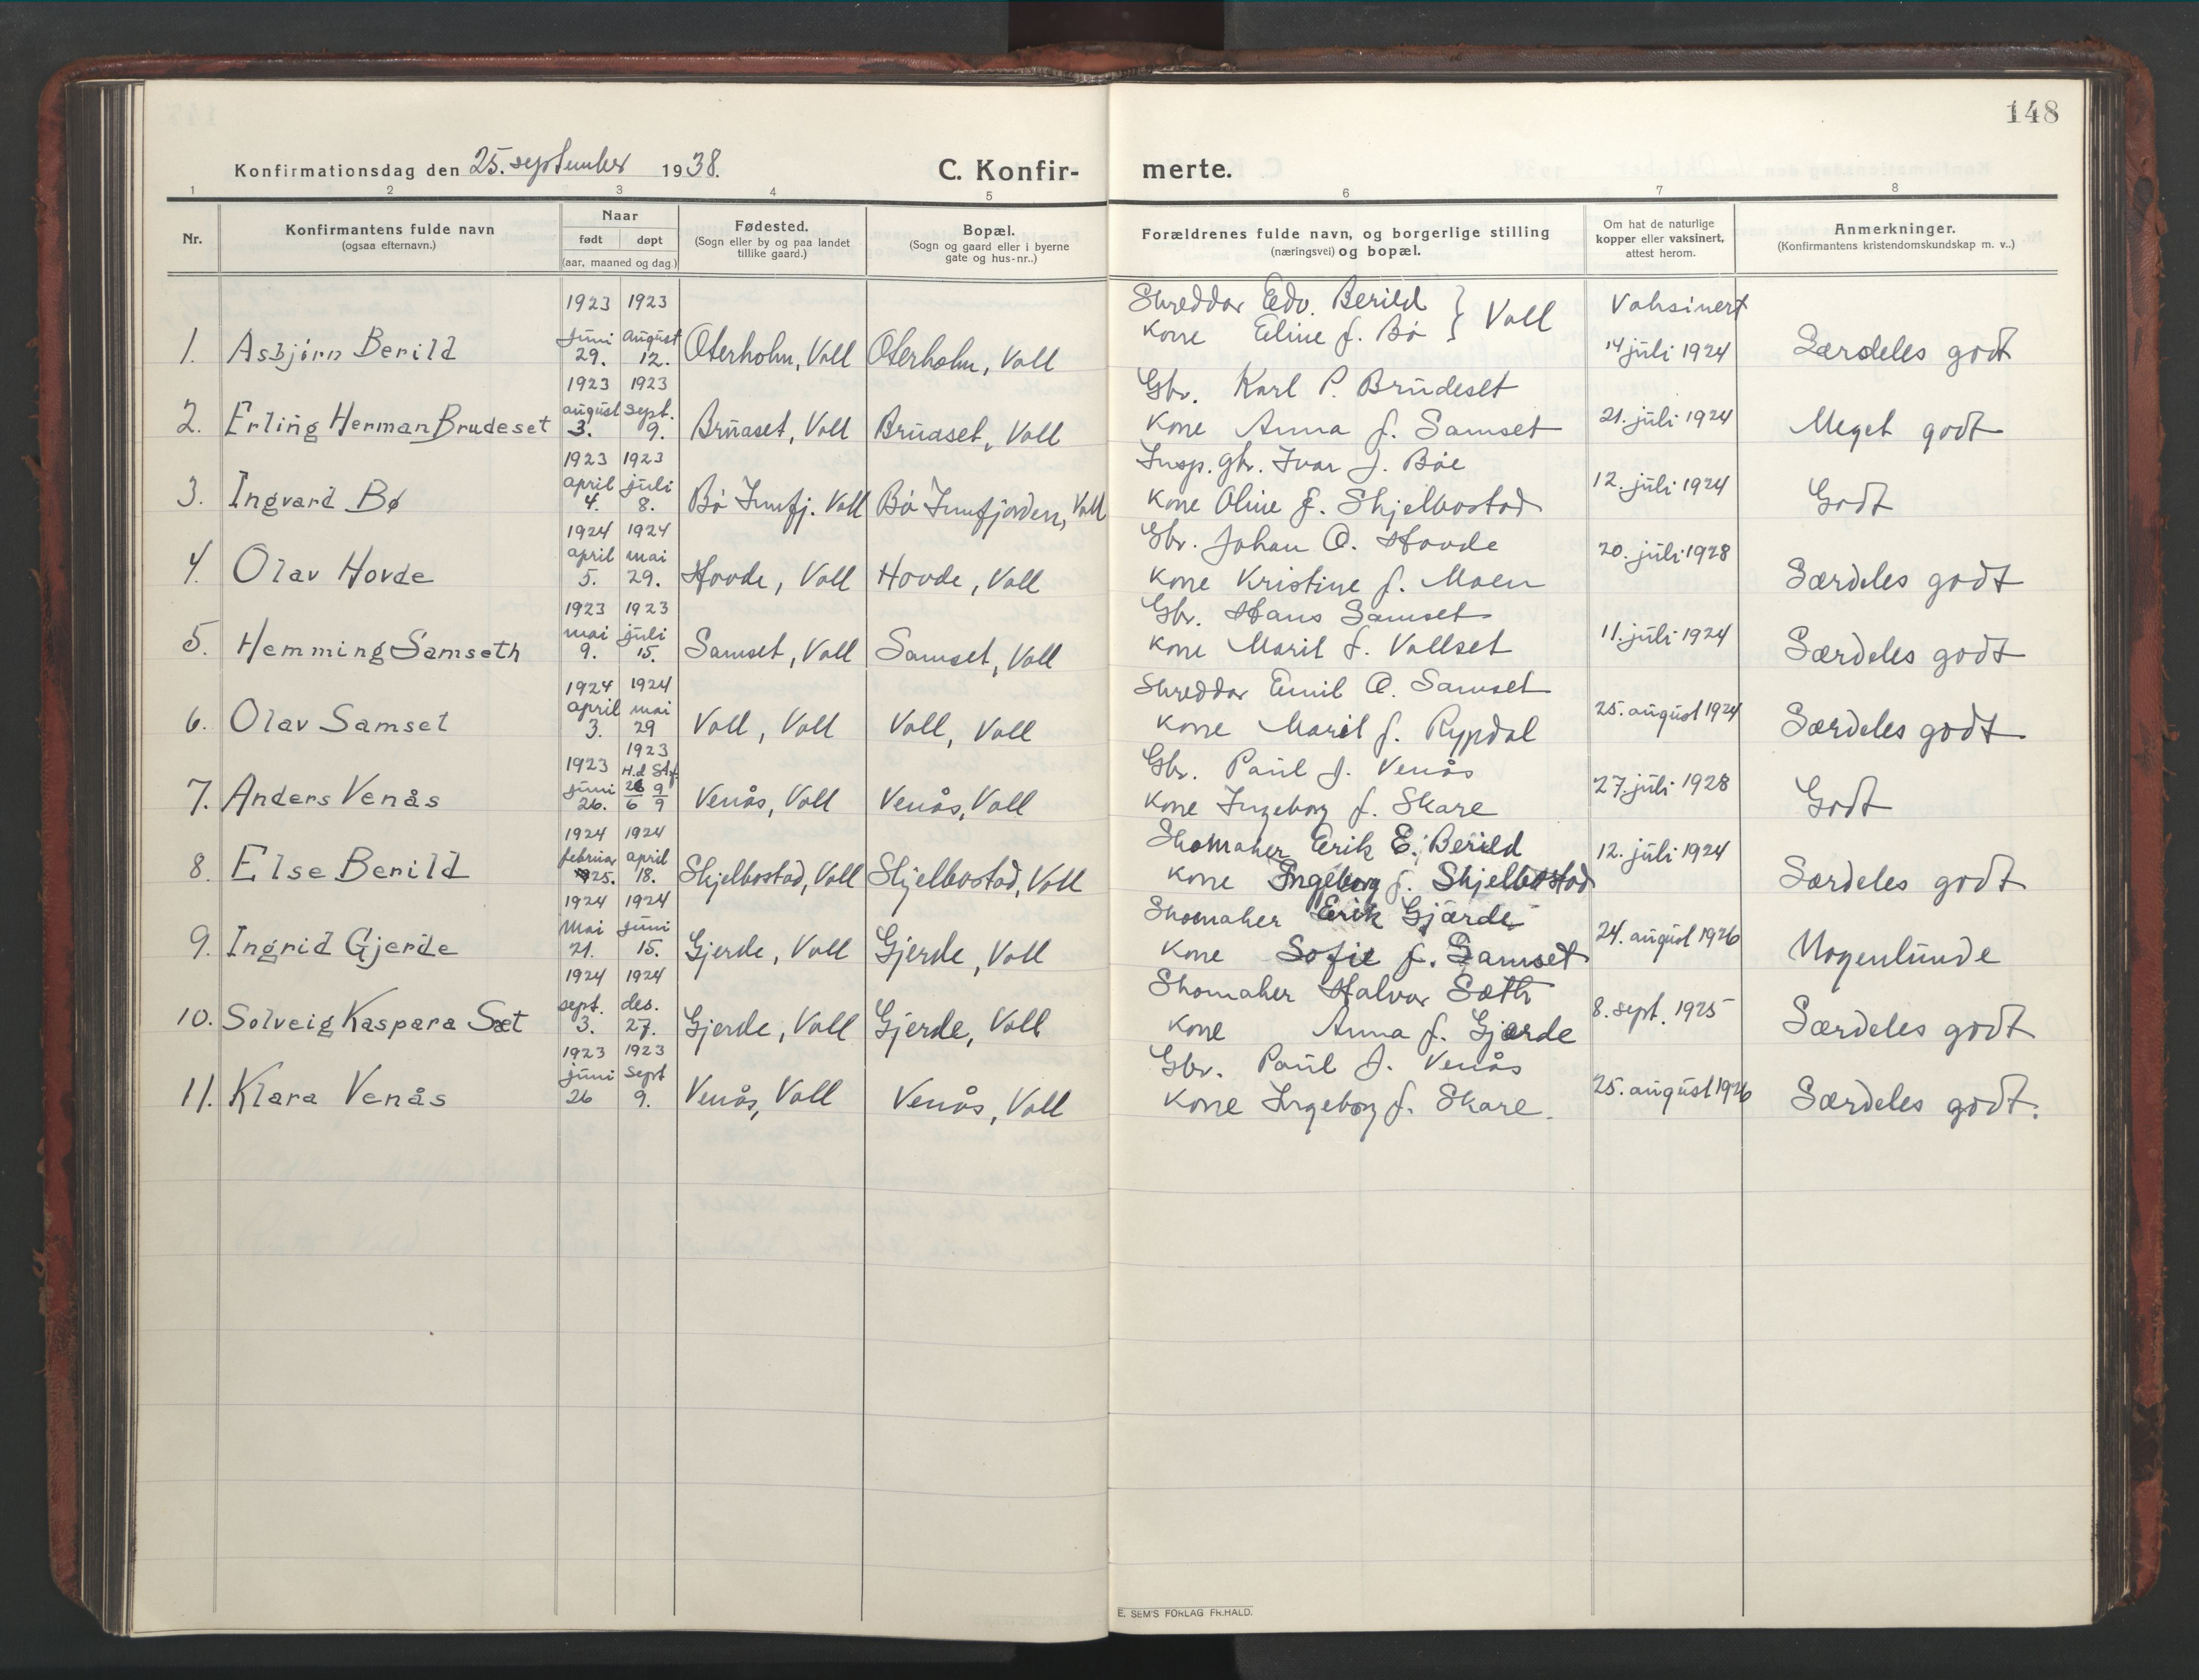 148
Konfirmationsdag den 25. september 1938. C. Konfir- merte.
1 2 3 4 5 6 7 8
Nr. Konfirmantens fulde navn (ogsaa efternavn.) Naar født døpt (aar, maaned og dag.) Fødested. (Sogn eller by og paa landet tillike gaard.) Bopæl. (Sogn og gaard eller i byerne gate og hus-nr..) Forældrenes fulde navn, og borgerlige stilling (næringsvei) og bopæl. Om hat de naturlige kopper eller vaksinert, attest herom. Anmerkninger. (Konfirmantens kristendomskundskap m. v..)
1. Asbjørn Berild 1923 juni 29. 1923 august 12. Oterholm, Voll Oterholm, Voll Skreddar Edv. Berild Kone Eline f. Bø } Voll Vaksinert 14 juli 1924 Særdeles godt
2. Erling Herman Brudeset 1923 august 3. 1923 sept. 9. Bruaset, Voll Bruaset, Voll Gbr. Karl P. Brudeset Kone Anna f. Samset 21. juli 1924 Meget godt
3. Ingvard Bø 1923 april 4. 1923 juli 8. Bø Innfj. Voll Bø Innfjorden, Voll Insp. gbr. Ivar J. Bøe Kone Oline f. Skjelbostad 12. juli 1924 Godt
4. Olav Hovde 1924 april 5. 1924 mai 29. Hovde, Voll Hovde, Voll Gbr. Johan O. Hovde Kone Kristine f. Moen 20. juli 1928 Særdeles godt
5. Hemming Samseth 1923 mai 9. 1923 juli 15. Samset, Voll Samset, Voll Gbr. Hans Samset Kone Marit f. Vollset 11. juli 1924 Særdeles godt
6. Olav Samset 1924 april 3. 1924 mai 29 Voll, Voll Voll, Voll Skreddar Emil O. Samset Kone Marit f. Rypdal 25. august 1924 Særdeles godt
7. Anders Venås 1923 juni 26. 1923 H.d Stf. 26/6 9/9 Venås, Voll Venås, Voll Gbr. Paul J. Venås Kone Ingeborg f. Skare 27. juli 1928 Godt
8. Else Berild 1924 februar 25. 1924 april 18. Skjelbostad, Voll Skjelbostad, Voll Skomaker Erik E. Berild Kone Ingeborg f. Skjelbostad 12. juli 1924 Særdeles godt
9. Ingrid Gjerde 1924 mai 21. 1924 juni 15. Gjerde, Voll Gjerde, Voll Skomaker Erik Gjærde Kone Sofie f. Samset 24. august 1926 Nogenlunde
10. Solveig Kaspara Sæt 1924 sept. 3. 1924 des. 27. Gjerde, Voll Gjerde, Voll Skomaker Halvor Sæth Kone Anna f. Gjærde 8. sept. 1925 Særdeles godt
11. Klara Venås 1923 juni 26 1923 sept 9. Venås, Voll Venås, Voll Gbr. Paul J. Venås Kone Ingeborg f. Skare. 25. august 1926 Særdeles godt.
E. SEM'S FORLAG FR.HALD.